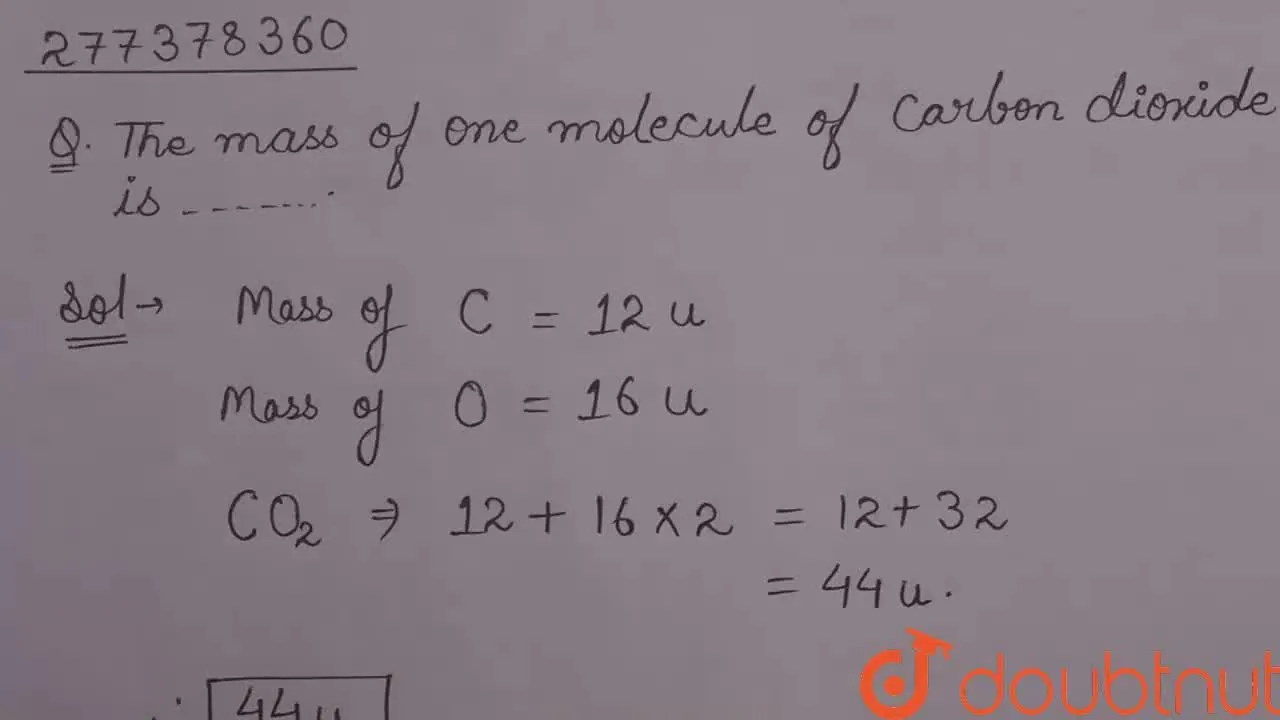 277378360
Q. The mass of one molecule of carbon dioxide
is ---------
Sol → Mass of C = 12 u
Mass of O = 16 u
CO₂ ⇒ 12 + 16 × 2 = 12 + 32
= 44 u.
44 u
doubtnut